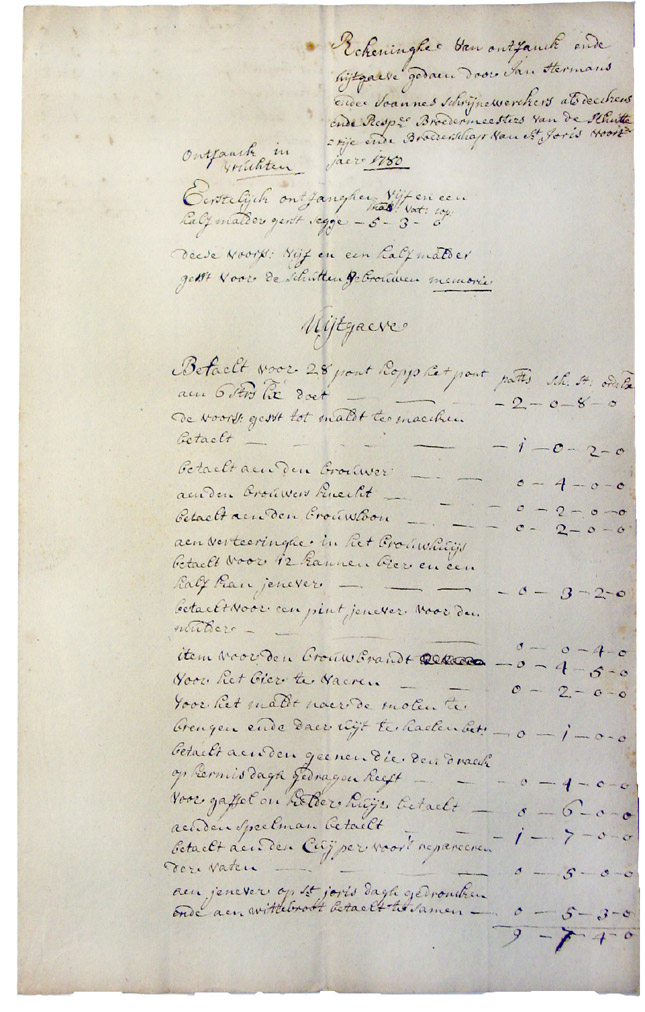 Rekeninghe van ontfanck ende
uijtgaeve gedaen door Jan Hermans
ende Joannes Schrijnewerckers als deeckens
ende Resp: Broedermeesters van de Schutte
rije ende Broederschap van St Joris voort
jaer 1780
ontfanck in
vruchten
Eerstelijck ontfanghen vijf en een
mald: vat: cop
half malder gerst segge - 5 - 3 - 0
deese voors: vijf en een half malder
gerst voor de schutten gebrouwen memorie
Uijtgaeve
Betaelt voor 28 pont hopp het pont
patts sch. st: ordts
aen 6 st doet — — - 2 - 0 - 8 - 0
de voors: gerst tot maldt te maecken
betaelt — — — - 1 - 0 - 2 - 0
betaelt aen den brouwer — — 0 - 4 - 0 - 0
aenden brouwers knecht — — 0 - 2 - 0 - 0
betaelt aenden brouwloon — — 0 - 2 - 0 - 0
aen verteeringhe in het brouwhuijs
betaelt voor 12 kannen bier en een
half kan jenever — — - 0 - 3 - 2 - 0
betaelt voor een pint jenever voor den
mulder — — 0 - 0 - 4 - 0
item voor den brouwbrandt - 0 - 4 - 5 - 0
voor het bier te vaeren — — 0 - 2 - 0 - 0
voor het maldt naer de molen te
brengen ende daer uijt te haelen bet: - 0 - 1 - 0 - 0
betaelt aenden geenen die den draeck
op kermis dagh gedragen heeft — 0 - 4 - 0 - 0
voor gaffel en kelder huijr betaelt — 0 - 6 - 0 - 0
aenden speelman betaelt — — 1 - 7 - 0 - 0
betaelt aenden Cuijper voor't repareeren
der vaten — — — 0 - 5 - 0 - 0
aen jenever op St joris dagh gedroncken
ende aen wittebrott betaelt te samen — 0 - 5 - 3 - 0
9 - 7 - 4 - 0